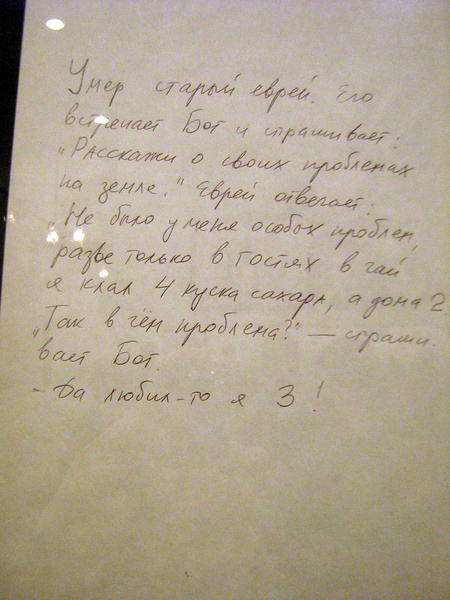 Умер старый еврей. Его
встречает Бог и спрашивает:
„Расскажи о своих проблемах
на земле." Еврей отвечает:
„Не было у меня особых проблем,
разве только в гостях в чай
я клал 4 куска сахара, а дома 2.
„Так в чём проблема?" — спраши-
вает Бог.
- Да любил-то я 3!